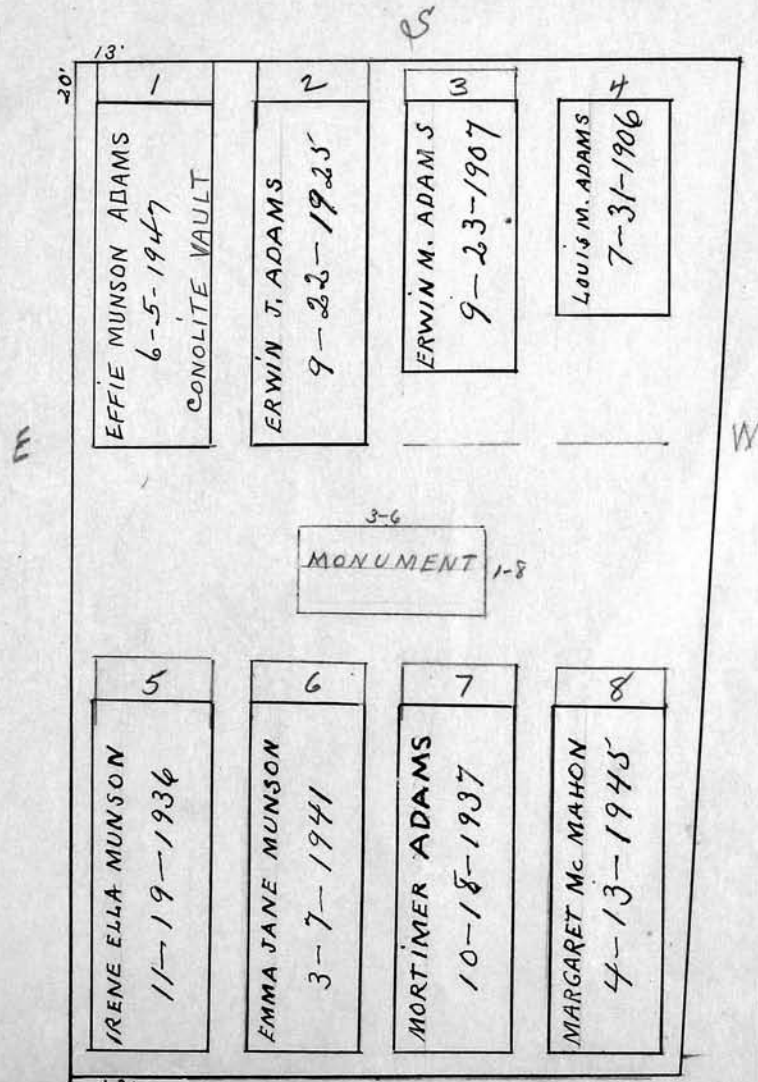 S
13'
20'
1
EFFIE MUNSON ADAMS
6-5-1947
CONOLITE VAULT
2
ERWIN J. ADAMS
9-22-1925
3
ERWIN M. ADAMS
9-23-1907
4
LOUIS M. ADAMS
7-31-1906
E
W
3-6
MONUMENT
1-8
5
IRENE ELLA MUNSON
11-19-1936
6
EMMA JANE MUNSON
3-7-1941
7
MORTIMER ADAMS
10-18-1937
8
MARGARET Mc MAHON
4-13-1945